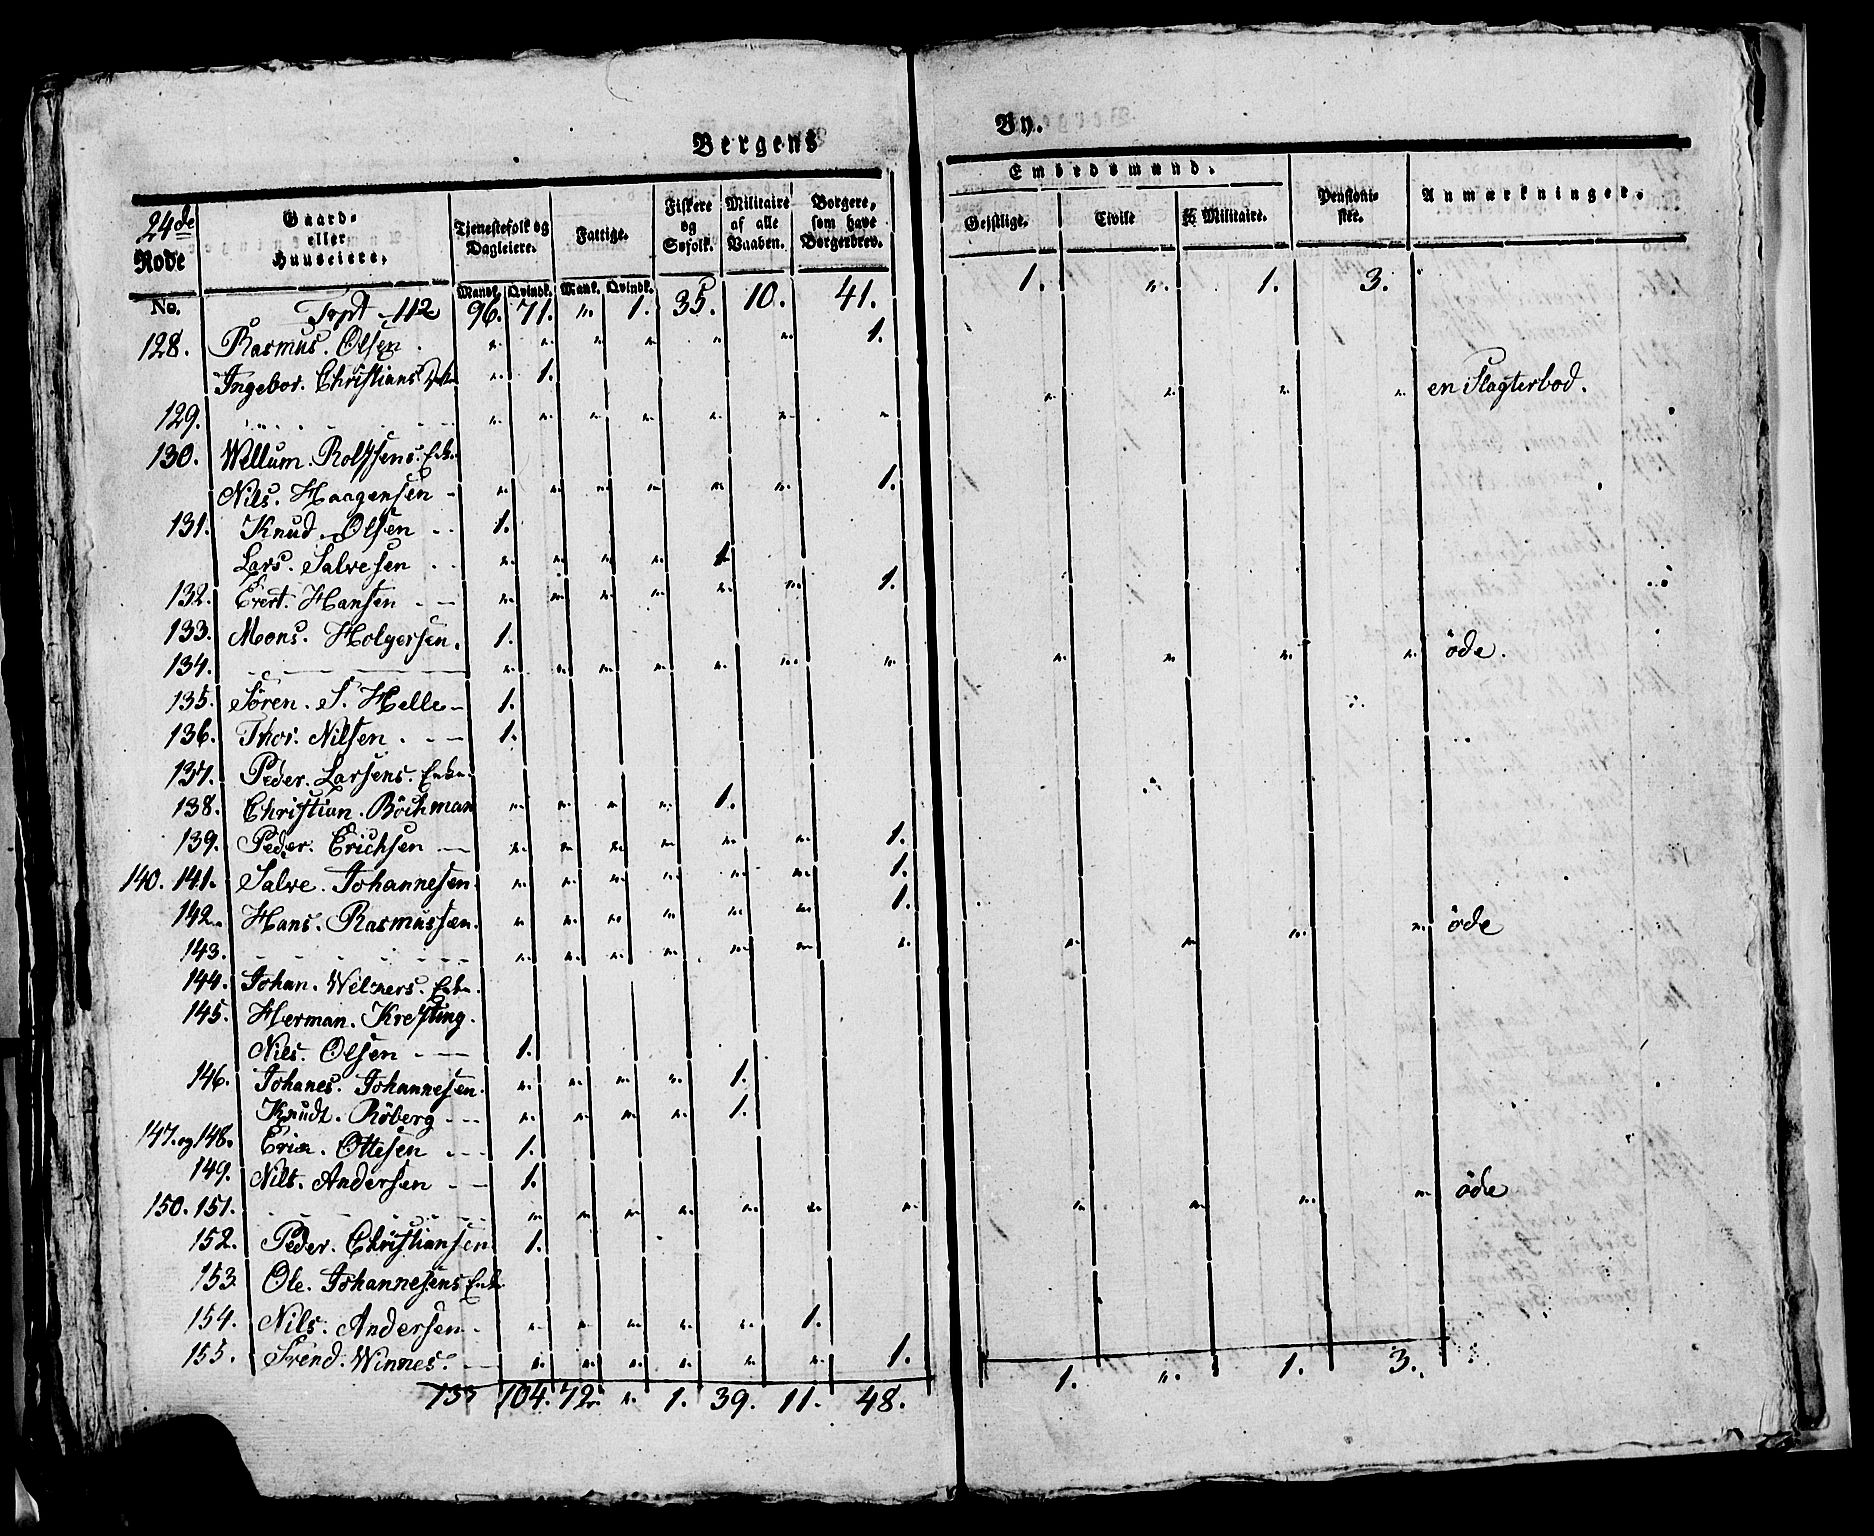 Bergens By.
24de Rode No. | Gaard- eller Huuseiere. | Tjenestefolk og Dagleiere. Mandk. Qvindk. | Fattige. Mank. Qvindk. | Fiskere og Søfolk. | Militaire af alle Vaaben. | Borgere, som have Borgerbrev. | Embedsmænd. Geistlige. Civile Militaire. | Pensionister. | Anmærkninger.
Trpt 112 96. 71. " 1. 35. 10. 41. 1. " 1. 3.
128. Rasmus. Olsen " " " " " " 1.
Ingebor. Christians " 1.
129. " " " " " " " " " " " en Slagterbod.
130. Wellum. Rolfsens. Enke
Nils. Haagensen " " " " " " 1.
131. Knud. Olsen 1.
Lars. Salvesen " " " " 1.
132. Evert. Hansen " " " " " " 1.
133. Mons. Holgersen. 1.
134. " " " " " " " " " " " öde.
135. Sören. S. Helle 1.
136. Thor. Nilsen 1.
137. Peder. Larsens. Enke.
138. Christian. Böchman " " " " 1.
139. Peder. Erichsen " " " " " " 1.
140. 141. Salve. Johannesen " " " " " " 1.
142. Hans. Rasmussen. " " " " " " 1.
143. " " " " " " " " " " " öde
144. Johan. Welners. Enke.
145. Herman. Kresting.
Nils. Olsen 1.
146. Johanes. Johannesen. " " " " 1.
Knudt. Röberg " " " " 1.
147. og 148. Eric. Ottesen 1.
149. Nils. Andersen 1.
150. 151. " " " " " " " " " " " öde
152. Peder. Christiansen 1.
153 Ole. Johannesens Enke
154. Nils. Andersen " " " " " 1.
155. Svend. Winnes. " " " " " " 1.
133 104. 72. " 1. 39. 11. 48. 1. " 1. 3.